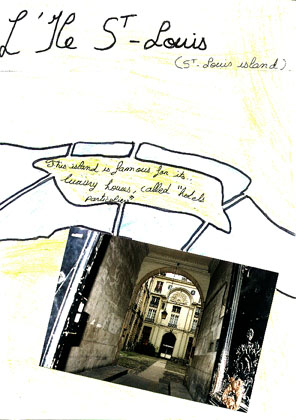 L'Ile ST-Louis
(ST-Louis island).
This island is famous for its..
luxury houses, called "hotels
particulier"